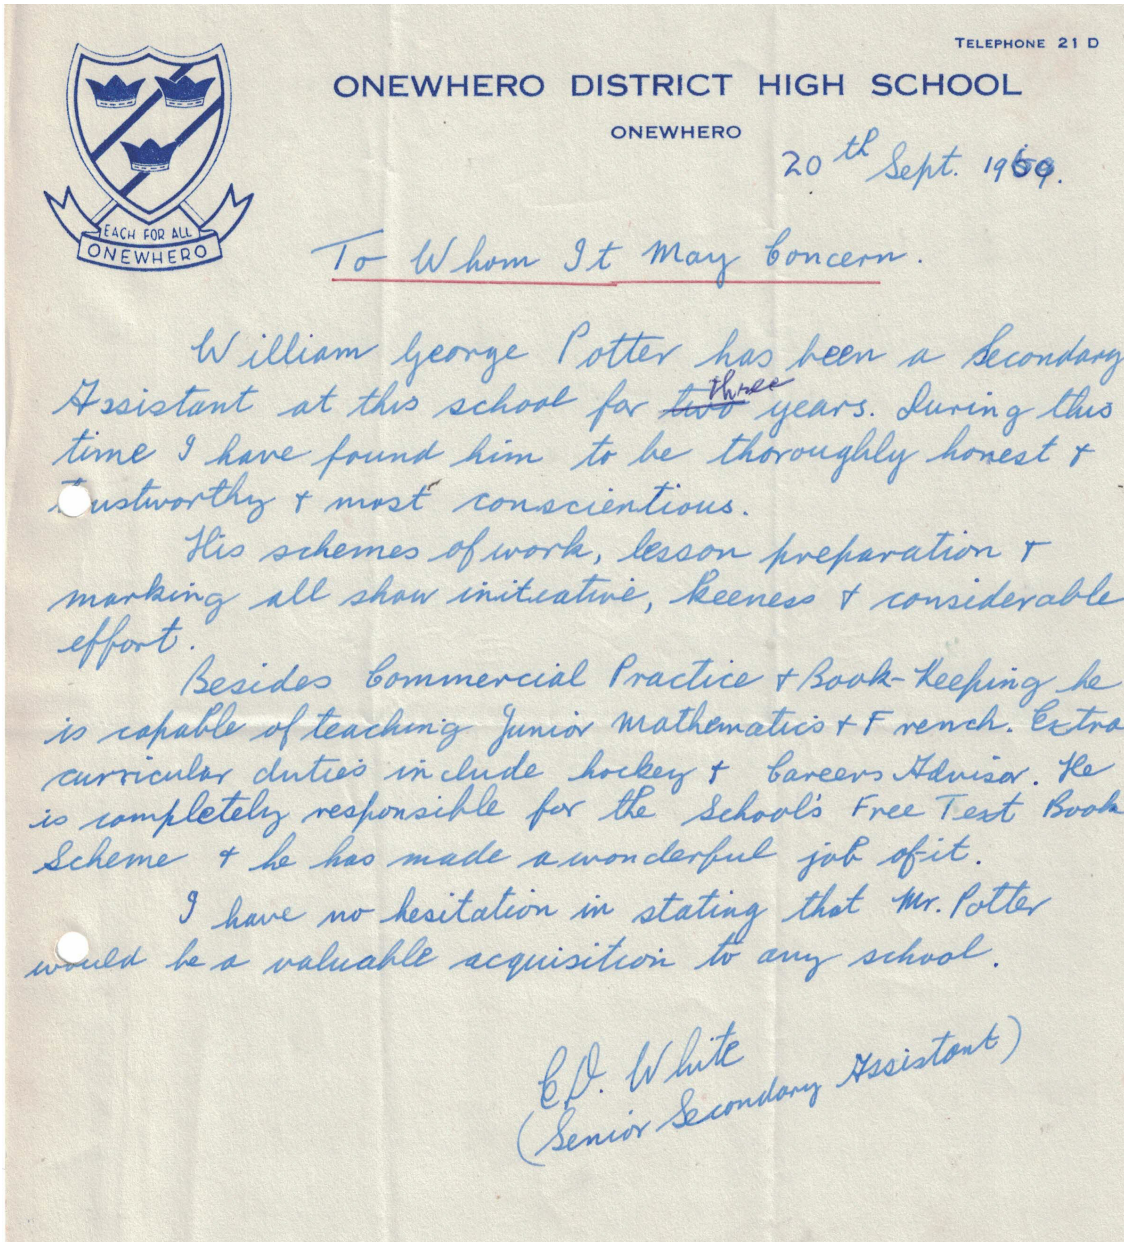 TELEPHONE 21 D
ONEWHERO DISTRICT HIGH SCHOOL
ONEWHERO
EACH FOR ALL
ONEWHERO
20th Sept.
To Whom It May Concern.
William George Potter has been a Secondary
Assistant at this school for two three years. During this
time I have found him to be thoroughly honest &
trustworthy & most conscientious.
His schemes of work, lesson preparation &
marking all show initiative, keeness & considerable
effort.
Besides Commercial Practice & Book-Keeping he
is capable of teaching Junior Mathematics & French. Extra
curricular duties include hockey & Careers Advisor. He
is completely responsible for the School's Free Text Book
Scheme & he has made a wonderful job of it.
I have no hesitation in stating that Mr. Potter
would be a valuable acquisition to any school.
C.D. White
(Senior Secondary Assistant)